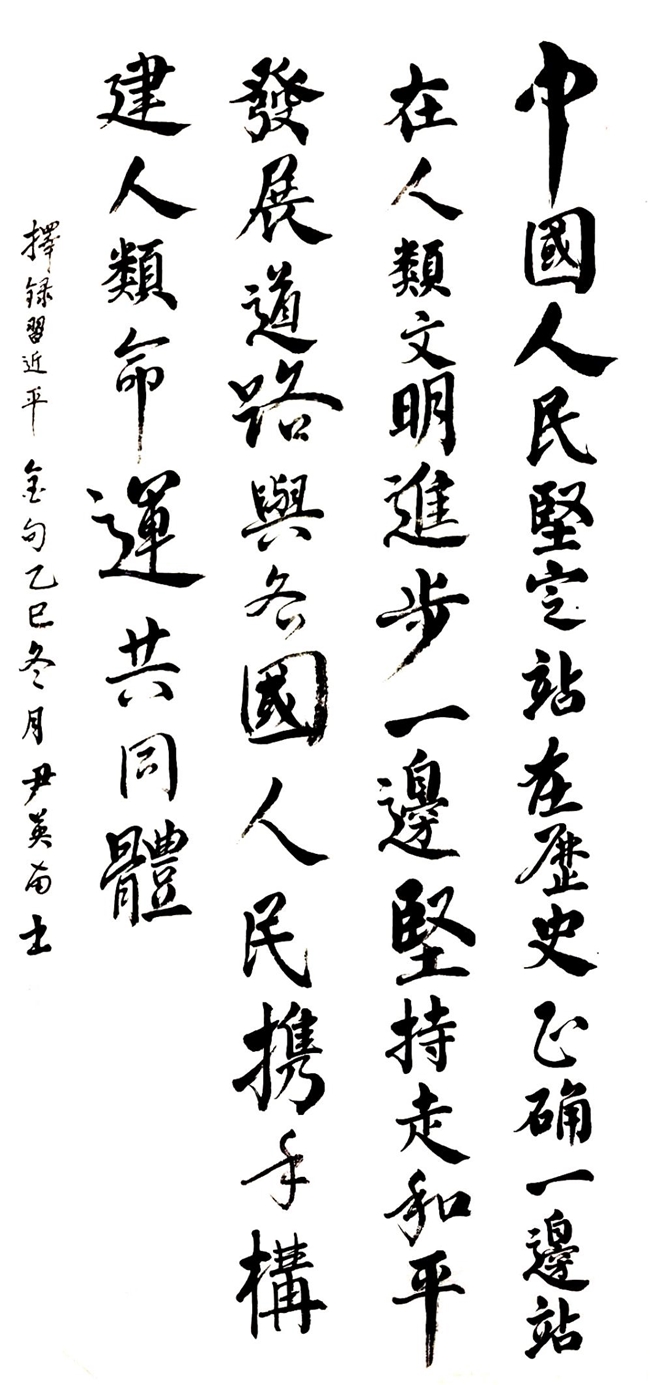 中國人民堅定站在歷史正确一邊站
在人類文明進步一邊堅持走和平
發展道路與各國人民携手構
建人類命運共同體
擇録習近平金句乙巳冬月尹英南士